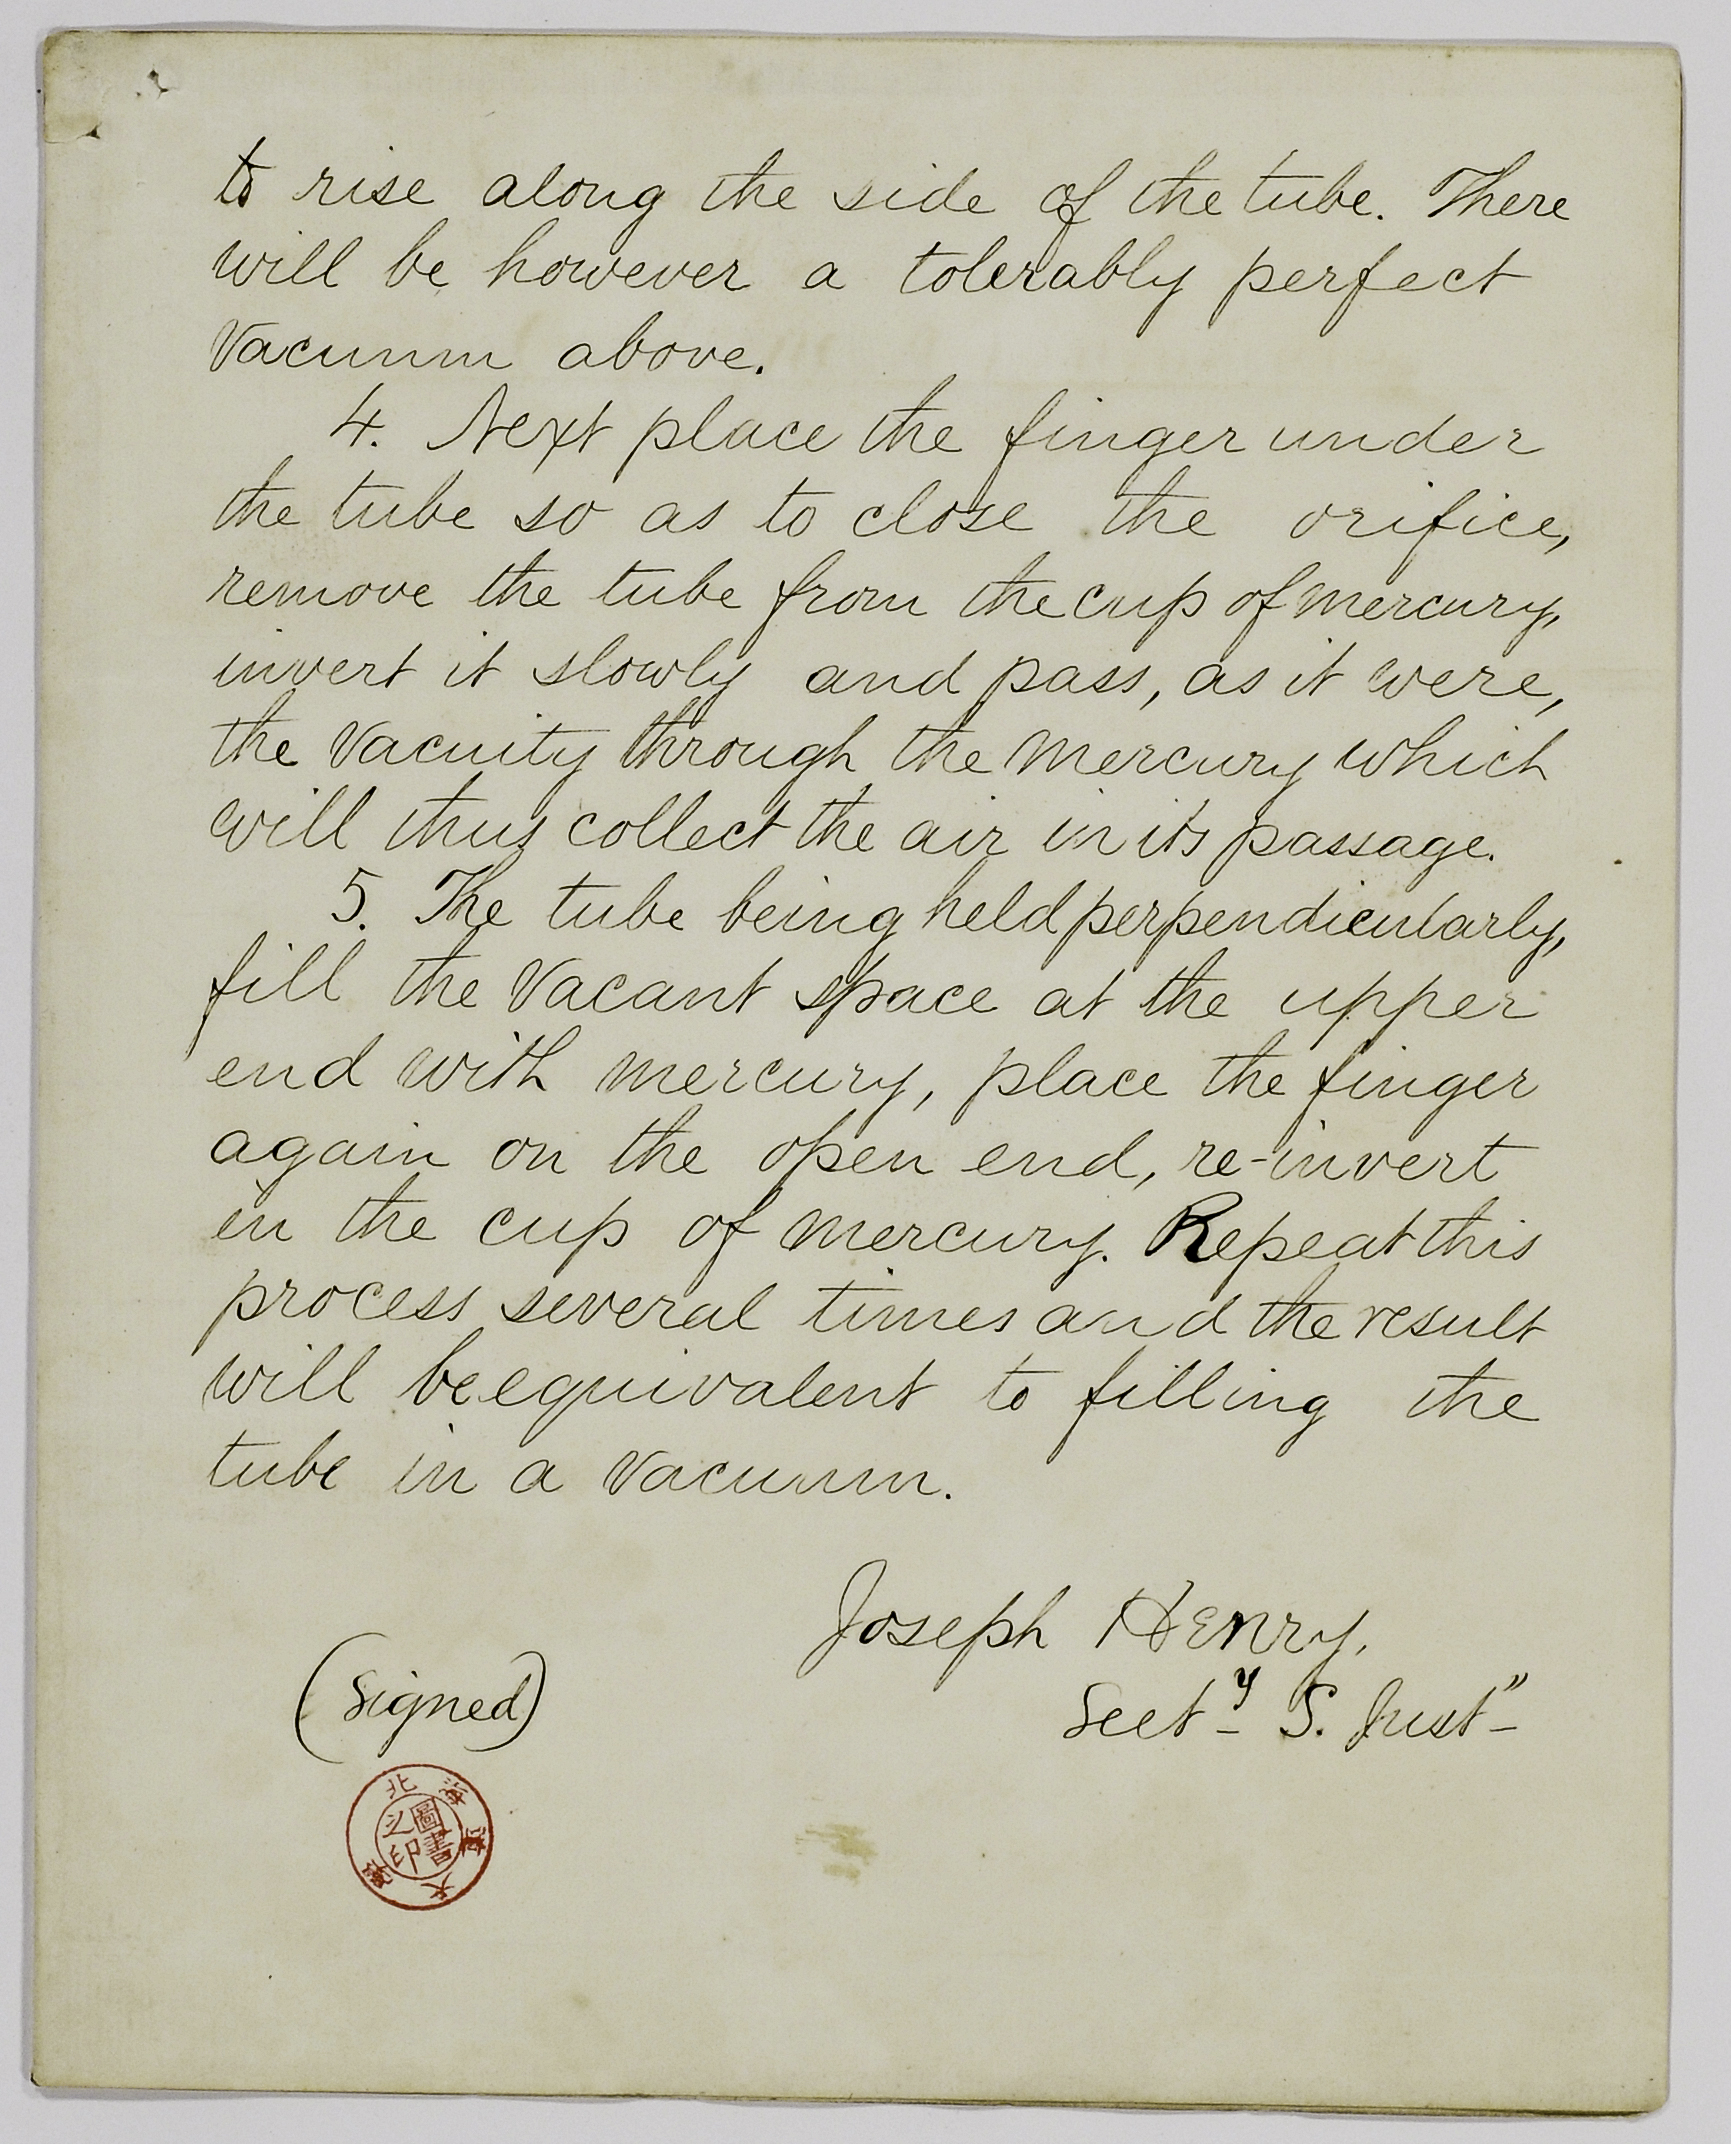 to rise along the side of the tube. There
will be however a tolerably perfect
Vacuum above.
4. Next place the finger under
the tube so as to close the orifice,
remove the tube from the cup of mercury,
invert it slowly and pass, as it were,
the Vacuity through the mercury which
will thus collect the air in its passage.
5. The tube being held perpendicularly,
fill the Vacant space at the upper
end with mercury, place the finger
again on the open end, re-invert
in the cup of mercury. Repeat this
process several times and the result
will be equivalent to filling the
tube in a vacuum.
Joseph Henry.
(Signed)
Sect- y S. Inst"-
北海道大學
圖書
之印